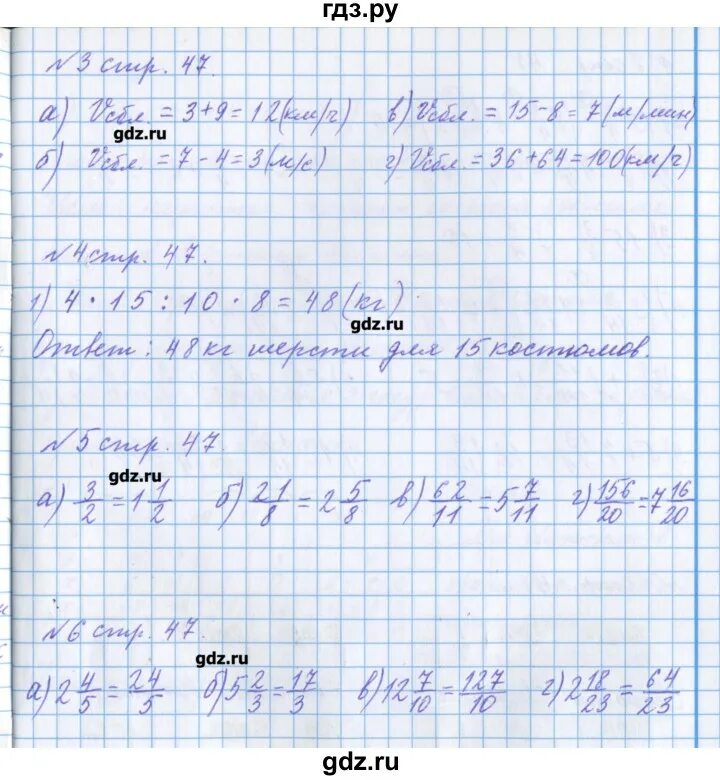 гдз.ру
№3 стр. 47.
а) Vсбл. = 3+9 = 12(км/ч) в) Vсбл. = 15-8 = 7(м/мин)
gdz.ru
б) Vсбл. = 7-4 = 3(м/с) г) Vсбл. = 36+64 = 100(км/ч)
№4 стр. 47.
1) 4 · 15 : 10 · 8 = 48 (кг)
gdz.ru
Ответ: 48 кг шерсти для 15 костюмов.
№5 стр. 47.
gdz.ru
а) 3/2 = 1 1/2 б) 21/8 = 2 5/8 в) 62/11 = 5 7/11 г) 156/20 = 7 16/20
№6 стр. 47.
gdz.ru
а) 2 4/5 = 24/5 б) 5 2/3 = 17/3 в) 12 7/10 = 127/10 г) 2 18/23 = 64/23
gdz.ru